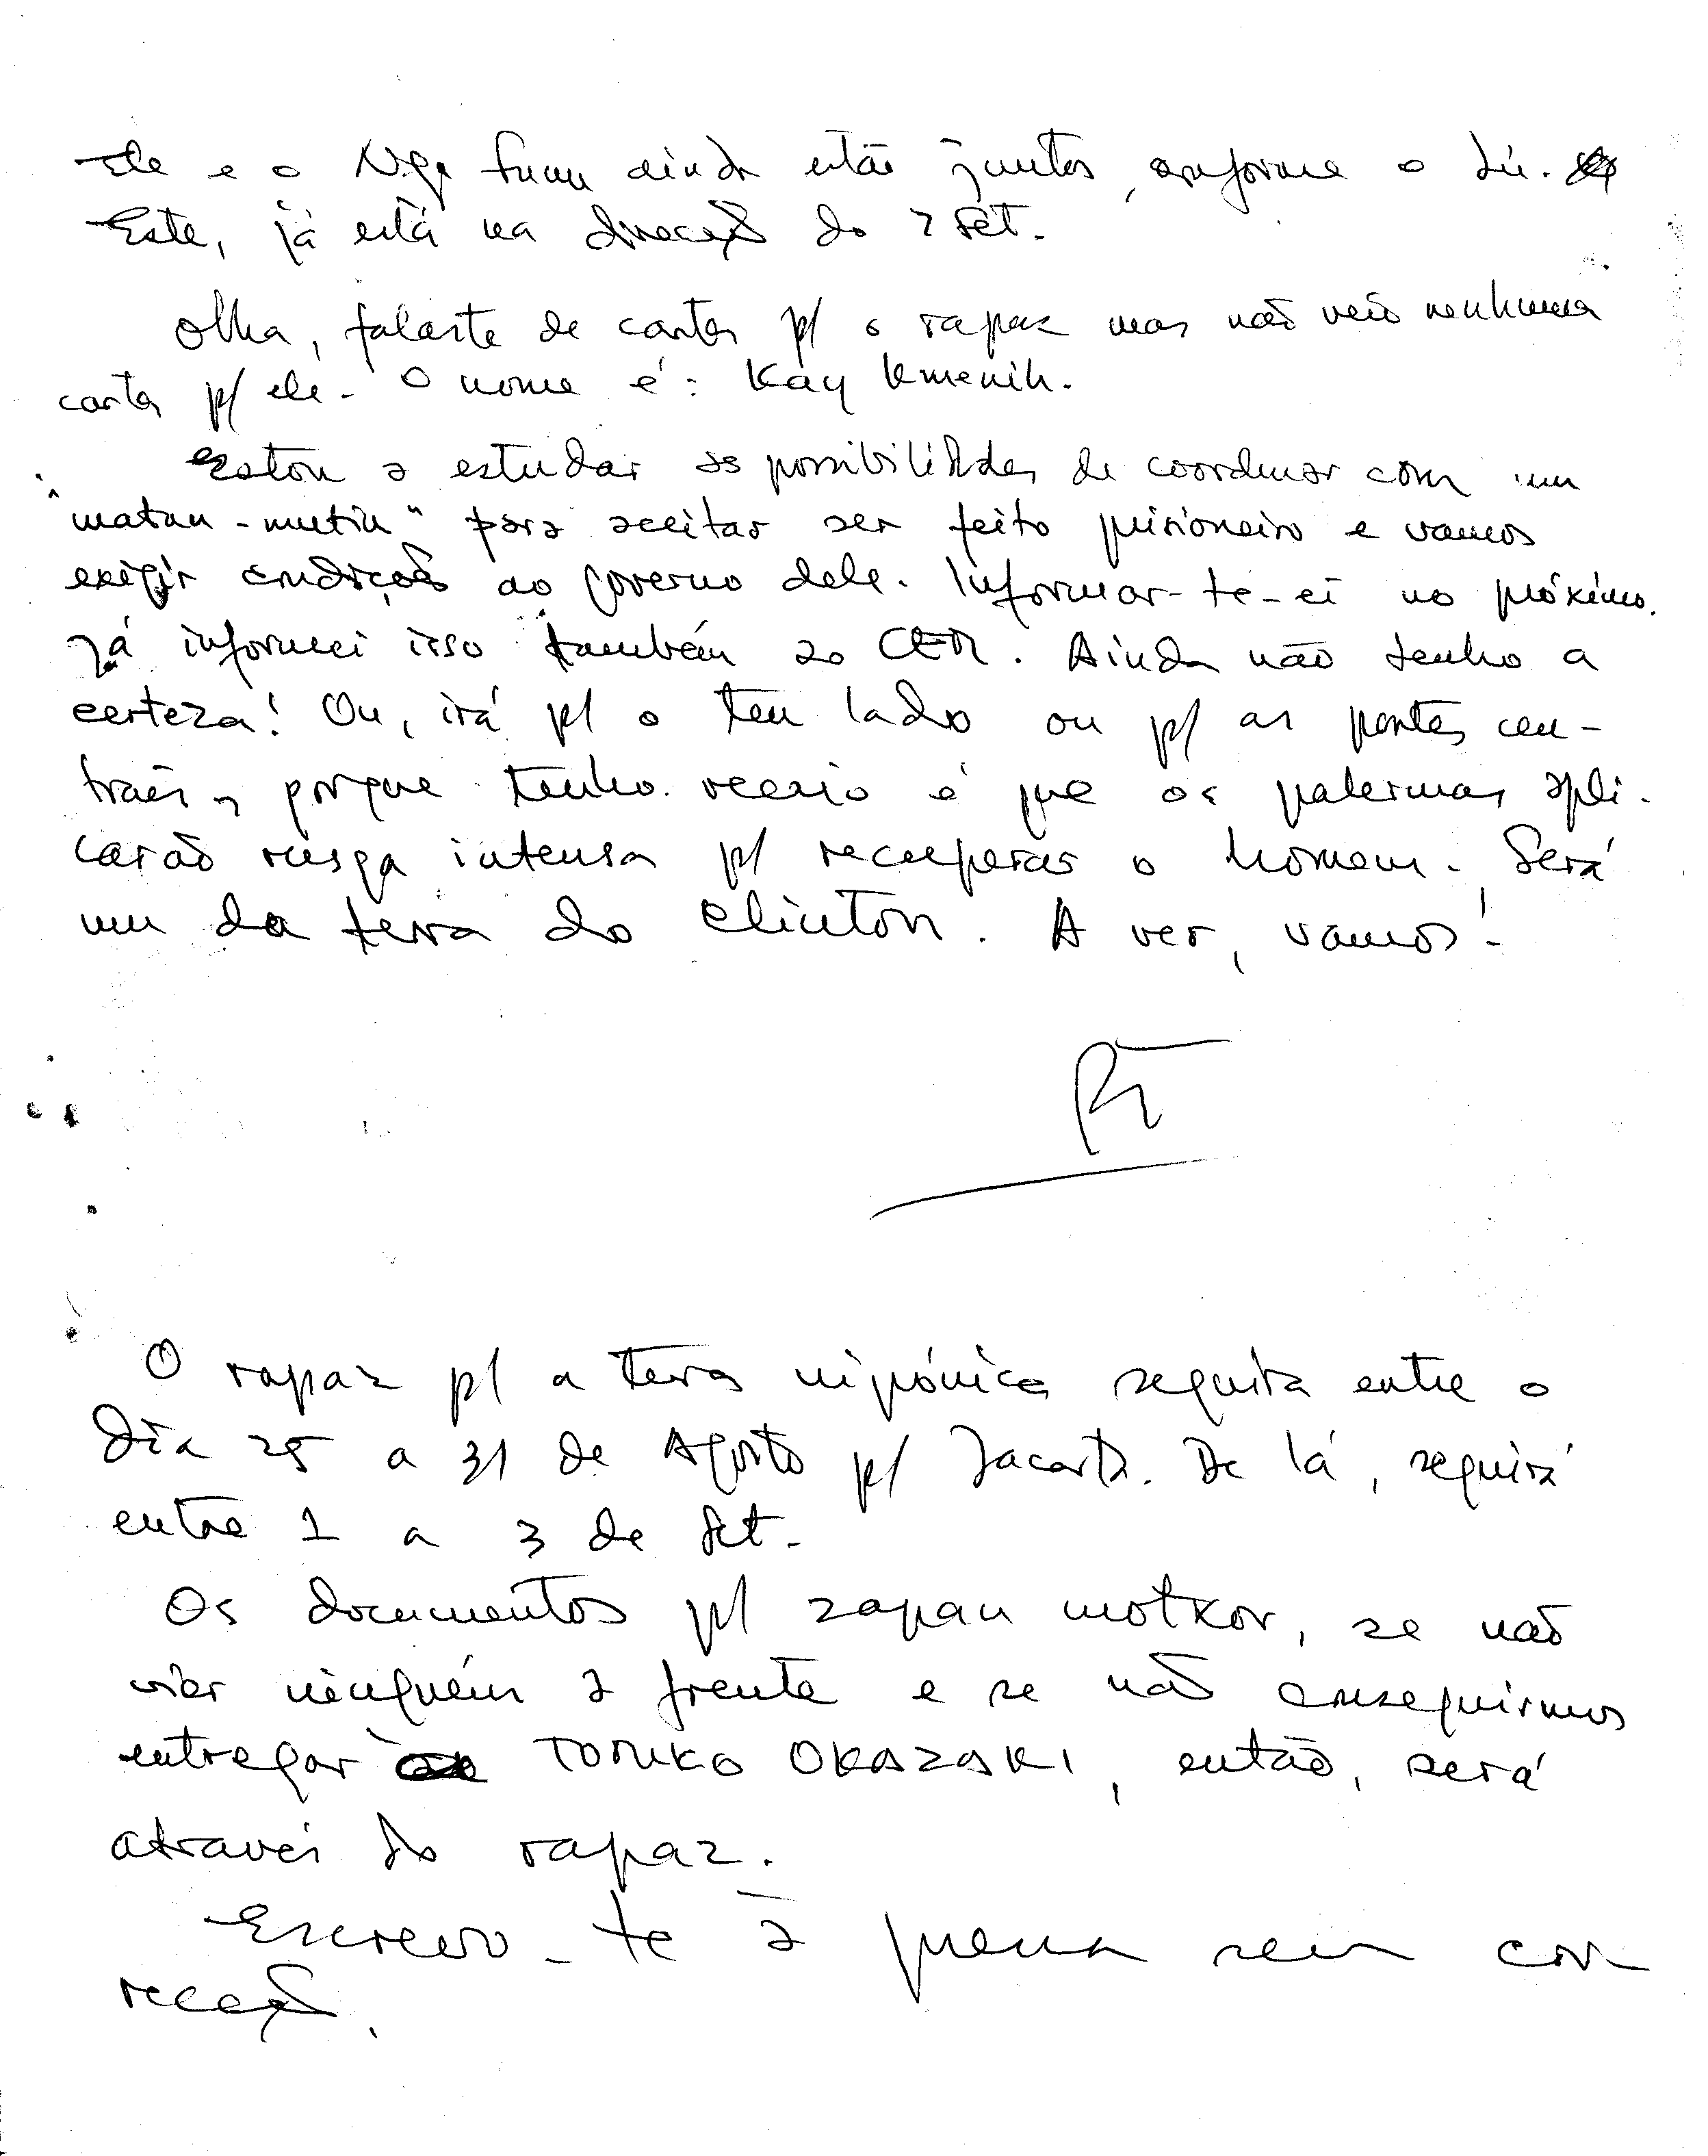 Ele e o ainda estão juntos, conforme o Lú.
Este, já está na direcção do 7 Set.
Olha, falaste de carta p/ o rapaz mas não veio nenhuma
carta p/ ele. O nome é: Kay Kmenih.
Estou a estudar as possibilidades de coordenar com um
"matan-mutin" para aceitar ser feito prisioneiro e vamos
exigir condições ao governo dele. Informar-te-ei no próximo.
Já informei isso também ao CER. Ainda não tenho a
certeza! Ou, irá p/ o teu lado ou p/ as pontes cen-
trais, porque tenho receio é que os palermas apli-
carão rusga intensa p/ recuperar o homem. Será
um da terra do Clinton. A ver, vamos!
O rapaz p/ a terra nipónica seguirá entre o
dia 25 a 31 de Agosto p/ Jacarta. De lá, seguirá
entre 1 a 3 de Set.
Os documentos p/ zapan motkor, se não
vier ninguém à frente e se não conseguirmos
entregar à TORIKO OKAZAKI, então, será
através do rapaz.
Escrevo-te à pressa sem cor
recção.